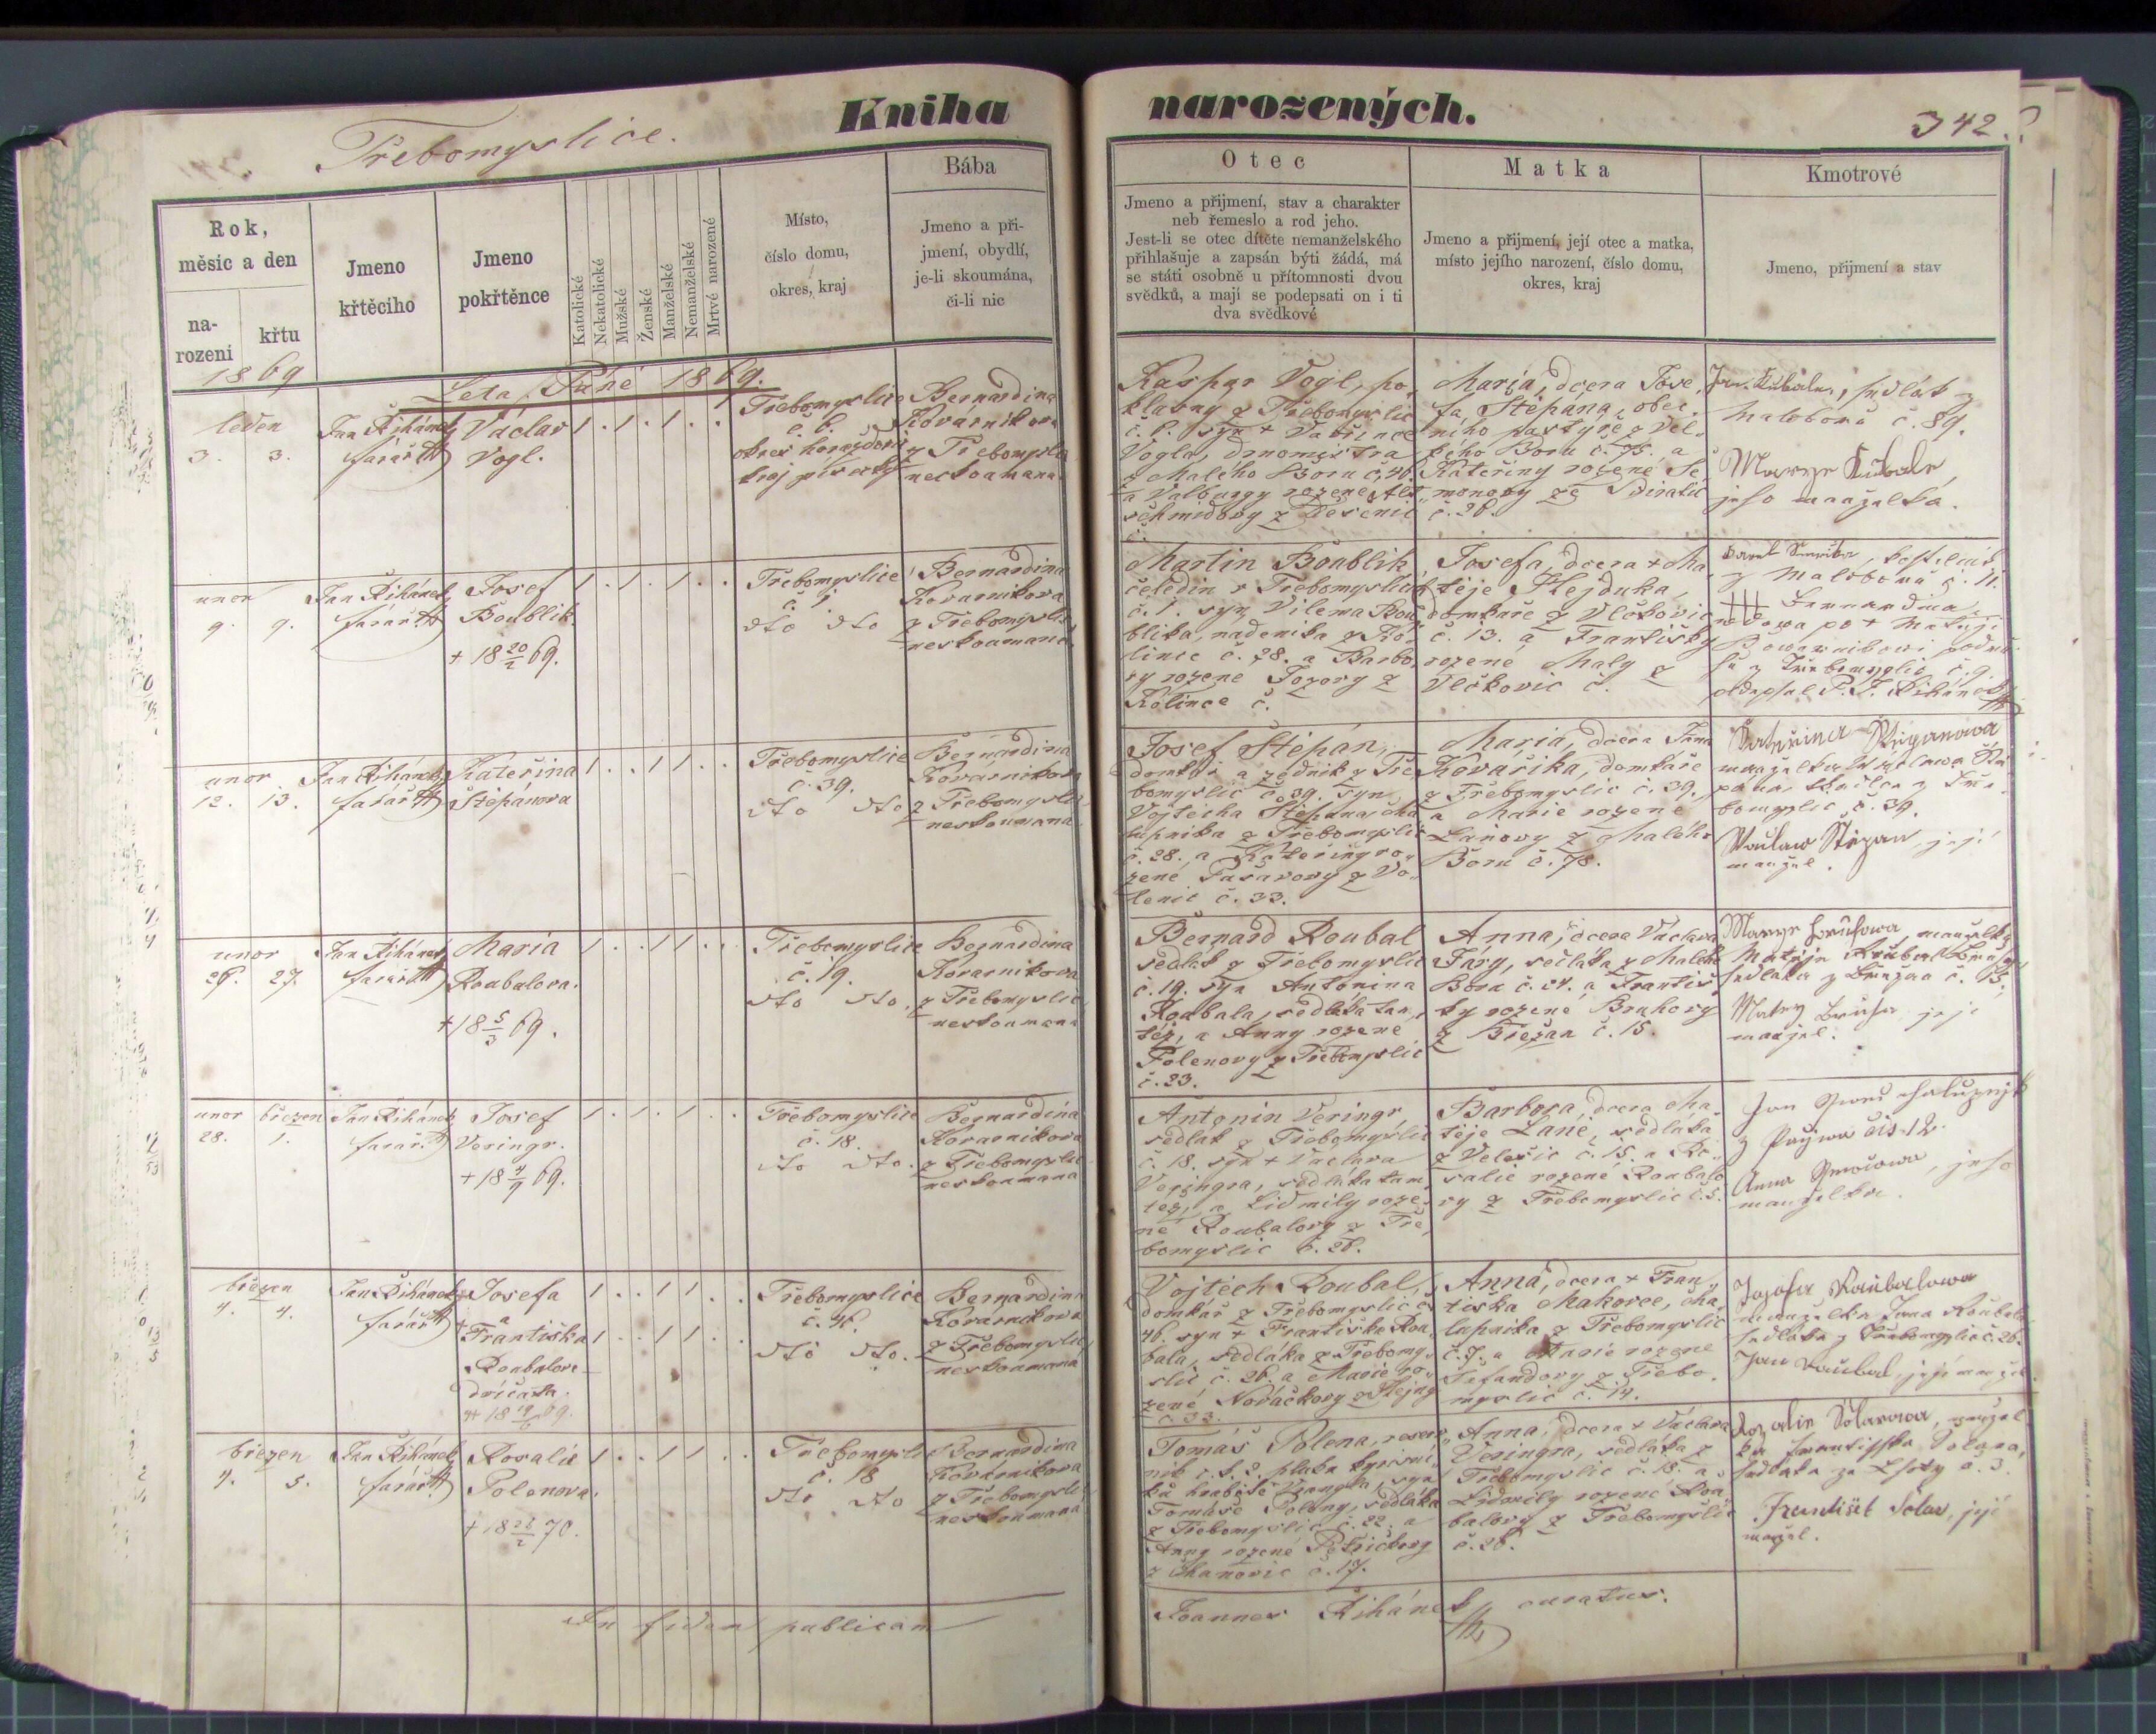 Kniha narozených.
Třebomyslice.
342.
Rok,
měsíc a den
na-
rození
křtu
Jmeno
křtěcího
Jmeno
pokřtěnce
Katolické
Nekatolické
Mužské
Ženské
Manželské
Nemanželské
Mrtvé narozené
Místo,
číslo domu,
okres, kraj
Bába
Jmeno a při-
jmení, obydlí,
je-li skoumána,
či-li nic
Otec
Jmeno a přijmení, stav a charakter
neb řemeslo a rod jeho.
Jest-li se otec dítěte nemanželského
přihlašuje a zapsán býti žádá, má
se státi osobně u přítomnosti dvou
svědků, a mají se podepsati on i ti
dva svědkové
Matka
Jmeno a přijmení, její otec a matka,
místo jejího narození, číslo domu,
okres, kraj
Kmotrové
Jmeno, přijmení a stav
1869
Leta Páně 1869.
leden
3. 3.
Jan Řihánek
farář
Václav
Vogl.
Třebomyslice
č. 6.
Bernardina
Kovárníkova
z Třebomyslic
neskoumana
Kašpar Vogl, po,
klasný z Třebomyslic
č. 6. syn + Vavřince
Vogla,
z Malého Boru č. 46.
a Valburgy rozené Alt
schmidovy z Děšenic
č.
Maria, dcera Jose,
fa Štěpána, obec,
ního pastýře z Vel,
kého Boru č. 75., a
Kateřiny rozené Še
monovy ze Sviratic
č. 26.
Jan Kubale, sedlák z
Malobora č. 89.
Marye Kubale,
jeho manzelka.
unor
9. 9.
Jan Řihánek
farář
Josef
Boublik.
+ 18 20/2 69.
Třebomyslice
č. 1.
dto dto
Bernardina
Kovarnikova
z Třebomyslic
neskoumana
Martin Boublik,
čeledín v Třebomyslicích
č. 1. syn Vilema Bou,
blika, nadenika z Ko,
lince č. 28. a Barbo,
ry rozené Tozovy z
Kolince č.
Josefa, dcera + Ma,
těje Hejduka,
domkáře z Vlčkovic
č. 13. a Františky
rozené Maly z
Vlčkovic č.
z Malobora č. 11.
+++ Bernardina,
vdova po + Matěji
Kovarnikovi
z Třebomyslic č. 9.
podepsal P. J. Řihánek
unor
12. 13.
Jan Řihánek
farář
Kateřina
Štěpánova
Třebomyslice
č. 39.
dto dto
Bernardina
Kovarnikova
z Třebomyslic
neskoumana
Josef Štěpán,
domkář a zedník z Tře
bomyslic č. 39. syn
Vojtěcha Štěpána, cha
lupnika z Třebomyslic
č. 28. a Kateřiny ro,
zené Pasarovy z Vo,
lenic č. 33.
Maria, dcera Jana
Kovařika, domkáře
z Třebomyslic č. 39.,
a Marie rozené
Lanovy z Malého
Boru č. 78.
Kateřina Štěpanowa
manželka Václava Ště
pána, z Tře,
bomyslic č. 39.
Waclaw Štěpan, její
manžel.
unor
26. 27.
Jan Řihánek
farář
Maria
Roubalova.
+ 18 5/3 69.
Třebomyslice
č. 19.
dto dto.
Bernardina
Kovarnikova
z Třebomyslic
neskoumana
Bernard Roubal
sedlák z Třebomyslic
č. 19. syn Antonina
Roubala, sedláka tam,
též, a Anny rozené
Polenovy z Třebomyslic
č. 23.
Anna, dcera Václava
Járy, sedláka z Malého
Boru č. 24. a Františ,
ky rozené Bruhovy
z Břežan č. 15.
manželka
sedlaka z Břežan č. 15,
její
manžel.
unor březen
28. 1.
Jan Řihánek
farář
Josef
Veringr.
+ 18 4/9 69.
Třebomyslice
č. 18.
dto dto.
Bernardina
Kovarnikova
z Třebomyslic
neskoumana
Antonin Veringr,
sedlák z Třebomyslic
č. 18. syn + Václava
Veringra, sedláka tam,
též, a Lidmily roze,
né Roubalovy z Tře,
bomyslic č. 26.
Barbora, dcera Ma,
těje Lané, sedláka
z Velešic č. 15. a Ro,
salie rozené Roubalo
vy z Třebomyslic č. 5.
čis 12.
Anna, jeho
manželka.
březen
4. 4.
Jan Řihánek
farář
Josefa
a
+ Františka
Roubalove
dvíčata.
+ 18 19/6 69.
Třebomyslice
č. 46.
dto dto.
Bernardina
Kovarnikova
z Třebomyslic
neskoumana
Vojtěch Roubal,
domkář z Třebomyslic č.
46. syn + Františka Rou,
bala, sedláka z Třebomy,
slic č. 26. a Marie ro,
zené Nováčkovy z Hejný
č. 33.
Anna, dcera + Fran,
tiška Makovce, cha,
lupnika z Třebomyslic
č. 7. a Marie rozené
Šefandovy z Třebo,
myslic č. 14.
Josefa Roubalowa
manželka Jana Roubala
sedlaka z Třebomyslic č. 26.
Jan Roubal, její manžel.
březen
4. 5.
Jan Řihánek
farář
Rosalie
Polenova.
+ 18 28/2 70.
Třebomyslice
č. 18
dto dto
Bernardina
Kovárnikova
z Třebomyslic
neskoumana
Tomáš Polena,
Tomáše Poleny, sedláka
z Třebomyslic č. 22. a
Anny rozené Petřičkovy
z Chanovic č. 17.
Anna, dcera + Václava
Veringra, sedláka z
Třebomyslic č. 18. a
Lidmily rozené Rou
balovy z Třebomyslic
č. 26.
Rozalie Šolarowa, manžel
ka Františka Šolara,
sedlaka ze Lhoty č. 3.
Frantisek Šolar, její
manžel.
In fidem publicam
Joannes Řihánek curatus.